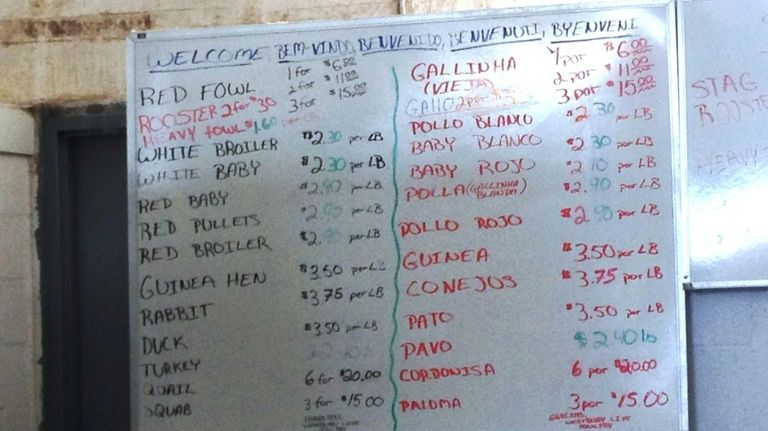 WELCOME, BEM-VINDO, BENVENIDO, BENVENUTI, BYENVENI
RED FOWL 1 for $6.00
2 for $11.00
3 for $15.00
ROOSTER 2 for $30
HEAVY FOWL $1.60 per LB
WHITE BROILER $2.30 per LB
WHITE BABY $2.30 per LB
RED BABY per LB
RED PULLETS per LB
RED BROILER per LB
GUINEA HEN $3.50 per LB
RABBIT $3.75 per LB
DUCK $3.50 per LB
TURKEY
QUAIL 6 for $20.00
SQUAB 3 for $15.00
GALLINHA 1 por $6.00
(VIEJA) 2 por $11.00
3 por $15.00
GALLO 2 por
POLLO BLANCO $2.30 por LB
BABY BLANCO $2.30 por LB
BABY ROJO por LB
POLLA (GALLINHA BLANDA) $2.90 por LB
POLLO ROJO $2.90 por LB
GUINEA $3.50 por LB
CONEJOS $3.75 por LB
PATO $3.50 por LB
PAVO $2.40 lb
CORDONISA 6 por $20.00
PALOMA 3 por $15.00
GRACIAS,
WESTPORT LIVE
POULTRY
STAG
ROOSTE
HEAVY